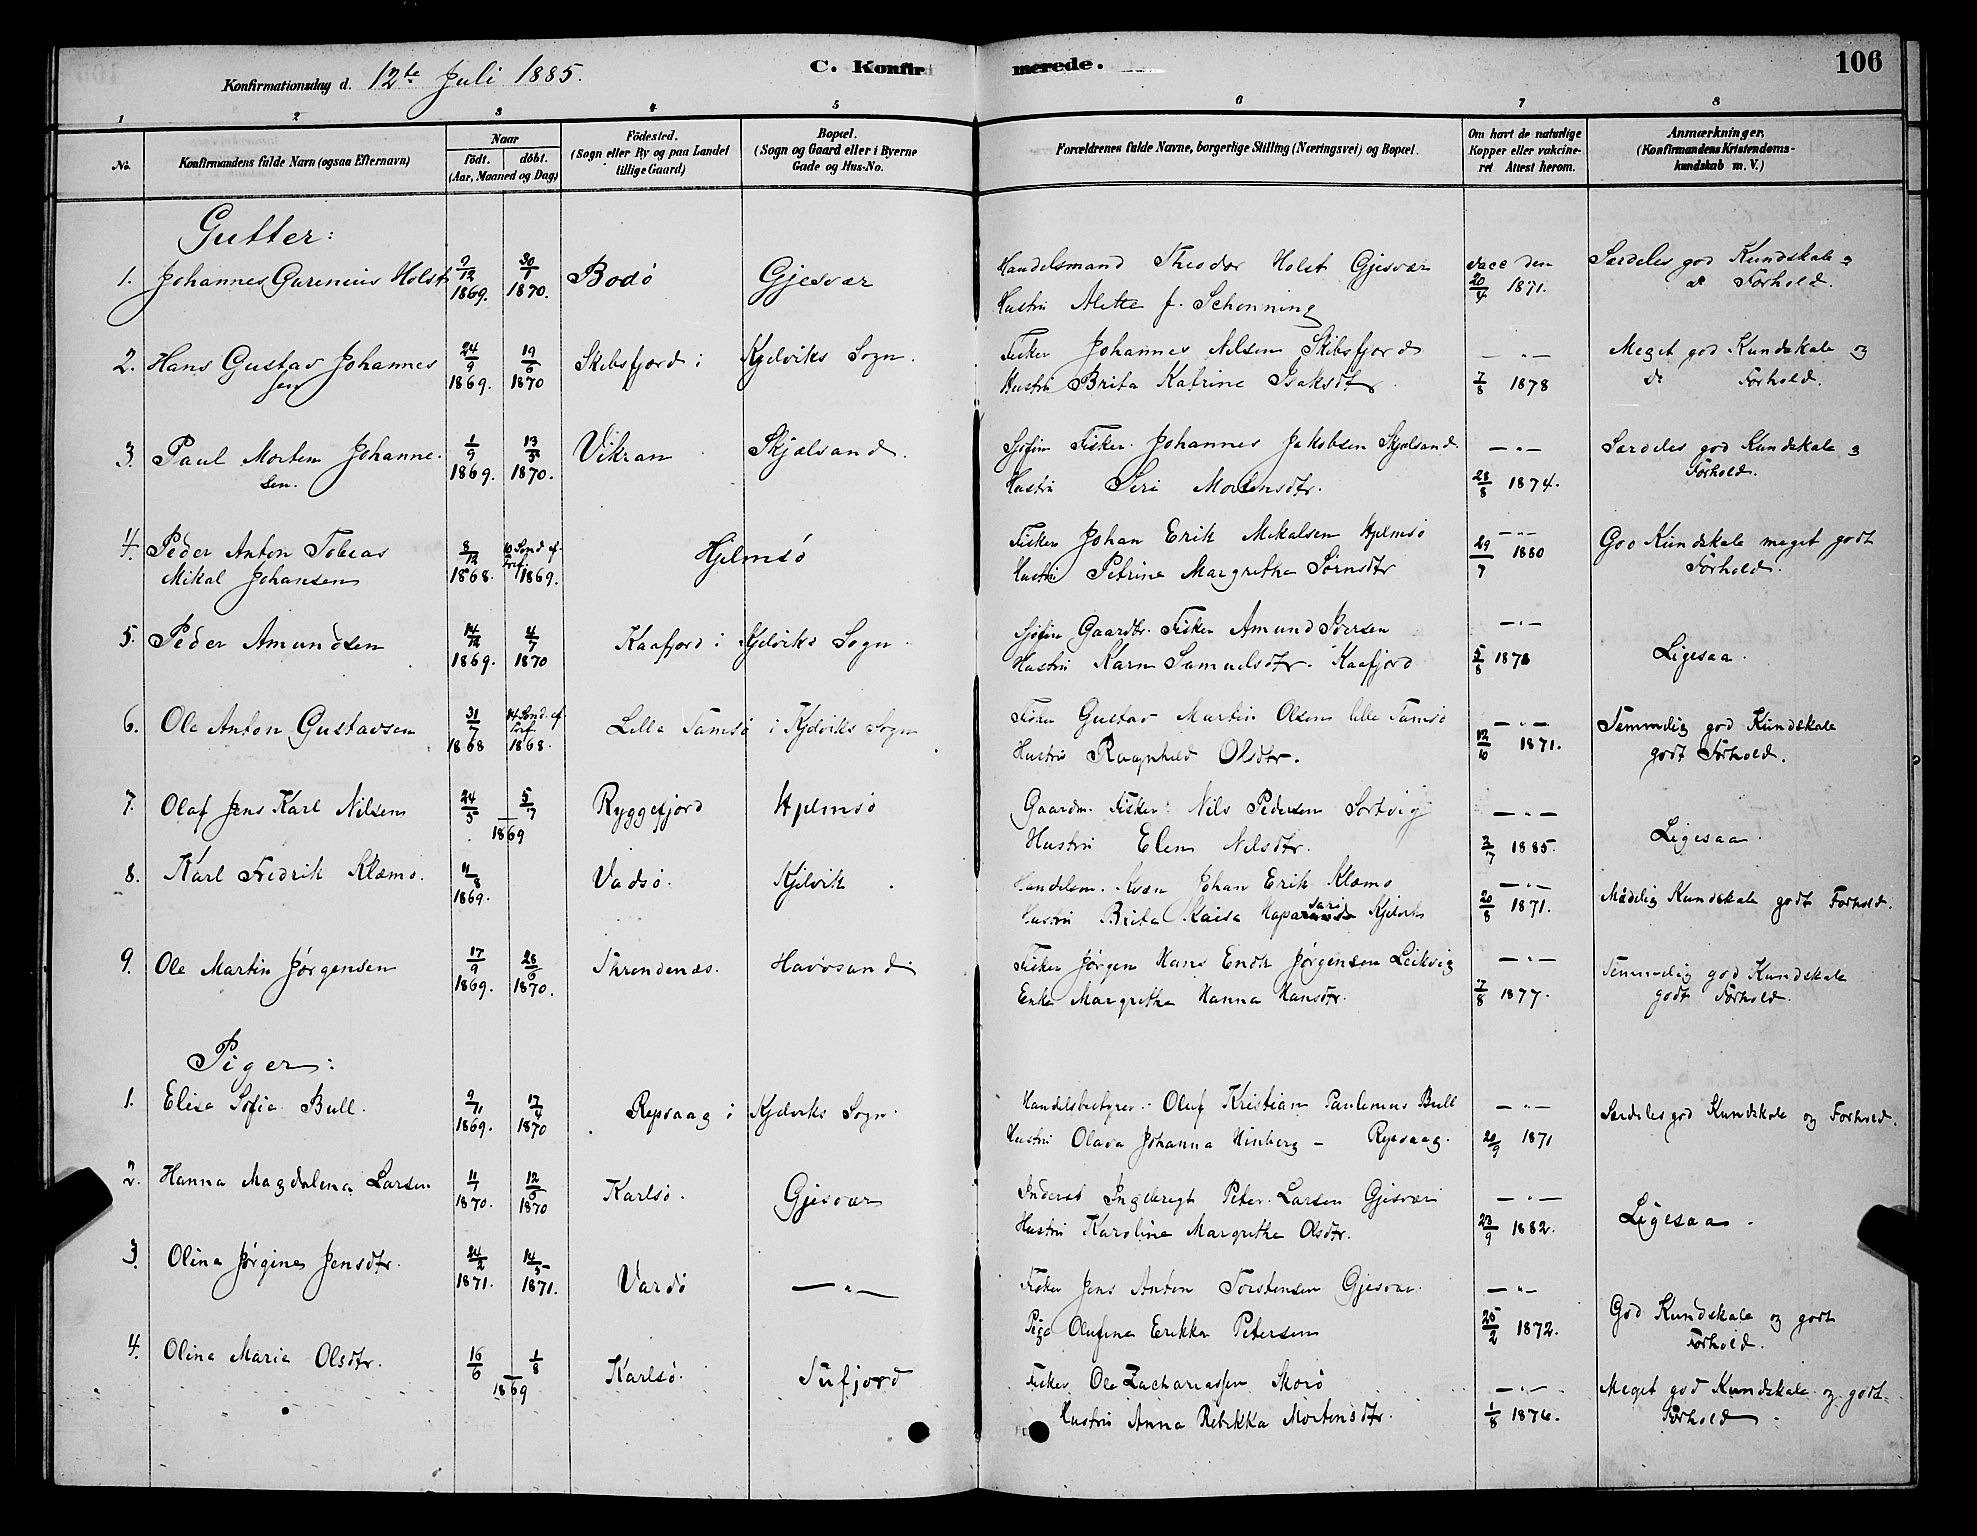 106
Konfirmationsdag d. 12te Juli 1885.
C. Konfirmerede.
1 2 3 4 5 6 7 8
No.
Konfirmandens fulde Navn (ogsaa Efternavn)
Naar
født. døbt.
(Aar, Maaned og Dag)
Fødested.
(Sogn eller By og paa Landet
tillige Gaard)
Bopæl.
(Sogn og Gaard eller i Byerne
Gade og Hus-No.
Forældrenes fulde Navne, borgerlige Stilling (Næringsvei) og Bopæl.
Om havt de naturlige
Kopper eller vakcine-
ret Attest herom.
Anmærkninger.
(Konfirmandens Kristendoms-
kundskab m. V.)
Gutter:
1. Johannes Holst 9/12 1869. 30/1 1870. Bodø Gjesvær
Handelsmand Theodor Holst Gjesvær vacc den
Hustru Alette f. Schønning 20/4 1871.
Særdeles god Kundskab
Forhold.
2. Hans Gustav Johannes
sen 24/9 1869. 19/6 1870 Skibsfjord i Kjelviks Sogn.
Fisker Johannes Nilsen Skibsfjord — " —
Hustru Brita Katrine Isaksdtr 7/8 1878
Meget god Kundskab og
Forhold.
3. Paul Morten Johanne-
sen. 1/9 1869. 13/5 1870. Vikran Skjælsand.
Sjøfin Fisker Johannes Jakobsen Skjælsand — " —
Hustru Siri Mortensdtr. 28/8 1874.
Særdeles god Kundskab
Forhold.
4. Peder Anton Tobias
Mikal Johansen 8/12 1868. 10 Sønd. ef. Tref. 1869. Hjelmsø
Fisker Johan Erik Mikalsen Hjelmsø — " —
Hustru Petrine Margrethe Sørnsdtr 29/7 1880
God Kundskab meget godt
Forhold.
5. Peder Amundsen 14/12 1869. 4/7 1870 Kaafjord i Kjelviks Sogn
Sjøfin Gaardbr. Fisker Amund Iversen — " —
Hustru Karn Samuelsdtr. Kaafjord 5/8 1878
Ligesaa.
6. Ole Anton Gustavsen 31/7 1868 14 Sønd. ef. Tref. 1868. Lille Tamsø i Kjelviks Sogn
Fisker Gustav Martin Olsen lille Tamsø — " —
Hustru Ragnhild Olsdtr. 12/10 1871.
Temmelig god Kundskab
godt Forhold.
7. Olaf Jens Karl Nilsen 24/5 5/7 1869 Ryggefjord Hjelmsø
Gaardm. Fisker Nils Pedersen Sortvig — " —
Hustru Elen Nilsdtr. 2/7 1885.
Ligesaa.
8. Karl Fredrik Klæmo. 11/8 1869. Vadsø. Kjelvik
Handelsm. Kvæn Johan Erik Klæmo — " —
Hustru Brita Kaisa Kjelvik 20/8 1871.
Mådelig Kundskab godt Forhold.
9. Ole Martin Jørgensen 17/9 1869. 28/6 1870. Throndenæs. Havøsund
Fisker Jørgen Hans Jørgensen Leikvig — " —
Enke Margrethe Hanna Hansdtr. 7/8 1877.
Temmelig god Kundskab
godt Forhold.
Piger:
1. Elisa Sofia Bull. 9/11 1869. 17/4 1870 Repvaag i Kjelviks Sogn.
Handelsbestyrer Oluf Kristian Paulenius Bull — " —
Hustru Olava Johanna Hinberg – Repvaag. 20/9 1871
Særdeles god Kundskab og Forhold.
2. Hanna Magdalena Larsen 11/1 1870. 12/6 1870 Karlsø. Gjesvær
Inderst Ingebrigt Peter Larsen Gjesvær — " —
Hustru Karoline Margrethe Olsdtr. 23/9 1882.
Ligesaa.
3. Olina Jørgine Jensdtr. 24/2 1871. 14/5 1871. Vardø — " —
Fisker Jens Anton Torstensen Gjesvær — " —
Pige Olufine Erikka Petersen 25/2 1872.
God Kundskab og godt
Forhold.
4. Olina Maria Olsdtr. 16/6 1/8 1869 Karlsø. Tufjord
Fisker Ole Zachariassen — " —
Hustru Anna Rebekka Mortensdtr. 1/8 1876.
Meget god Kundskab og godt
Forhold.